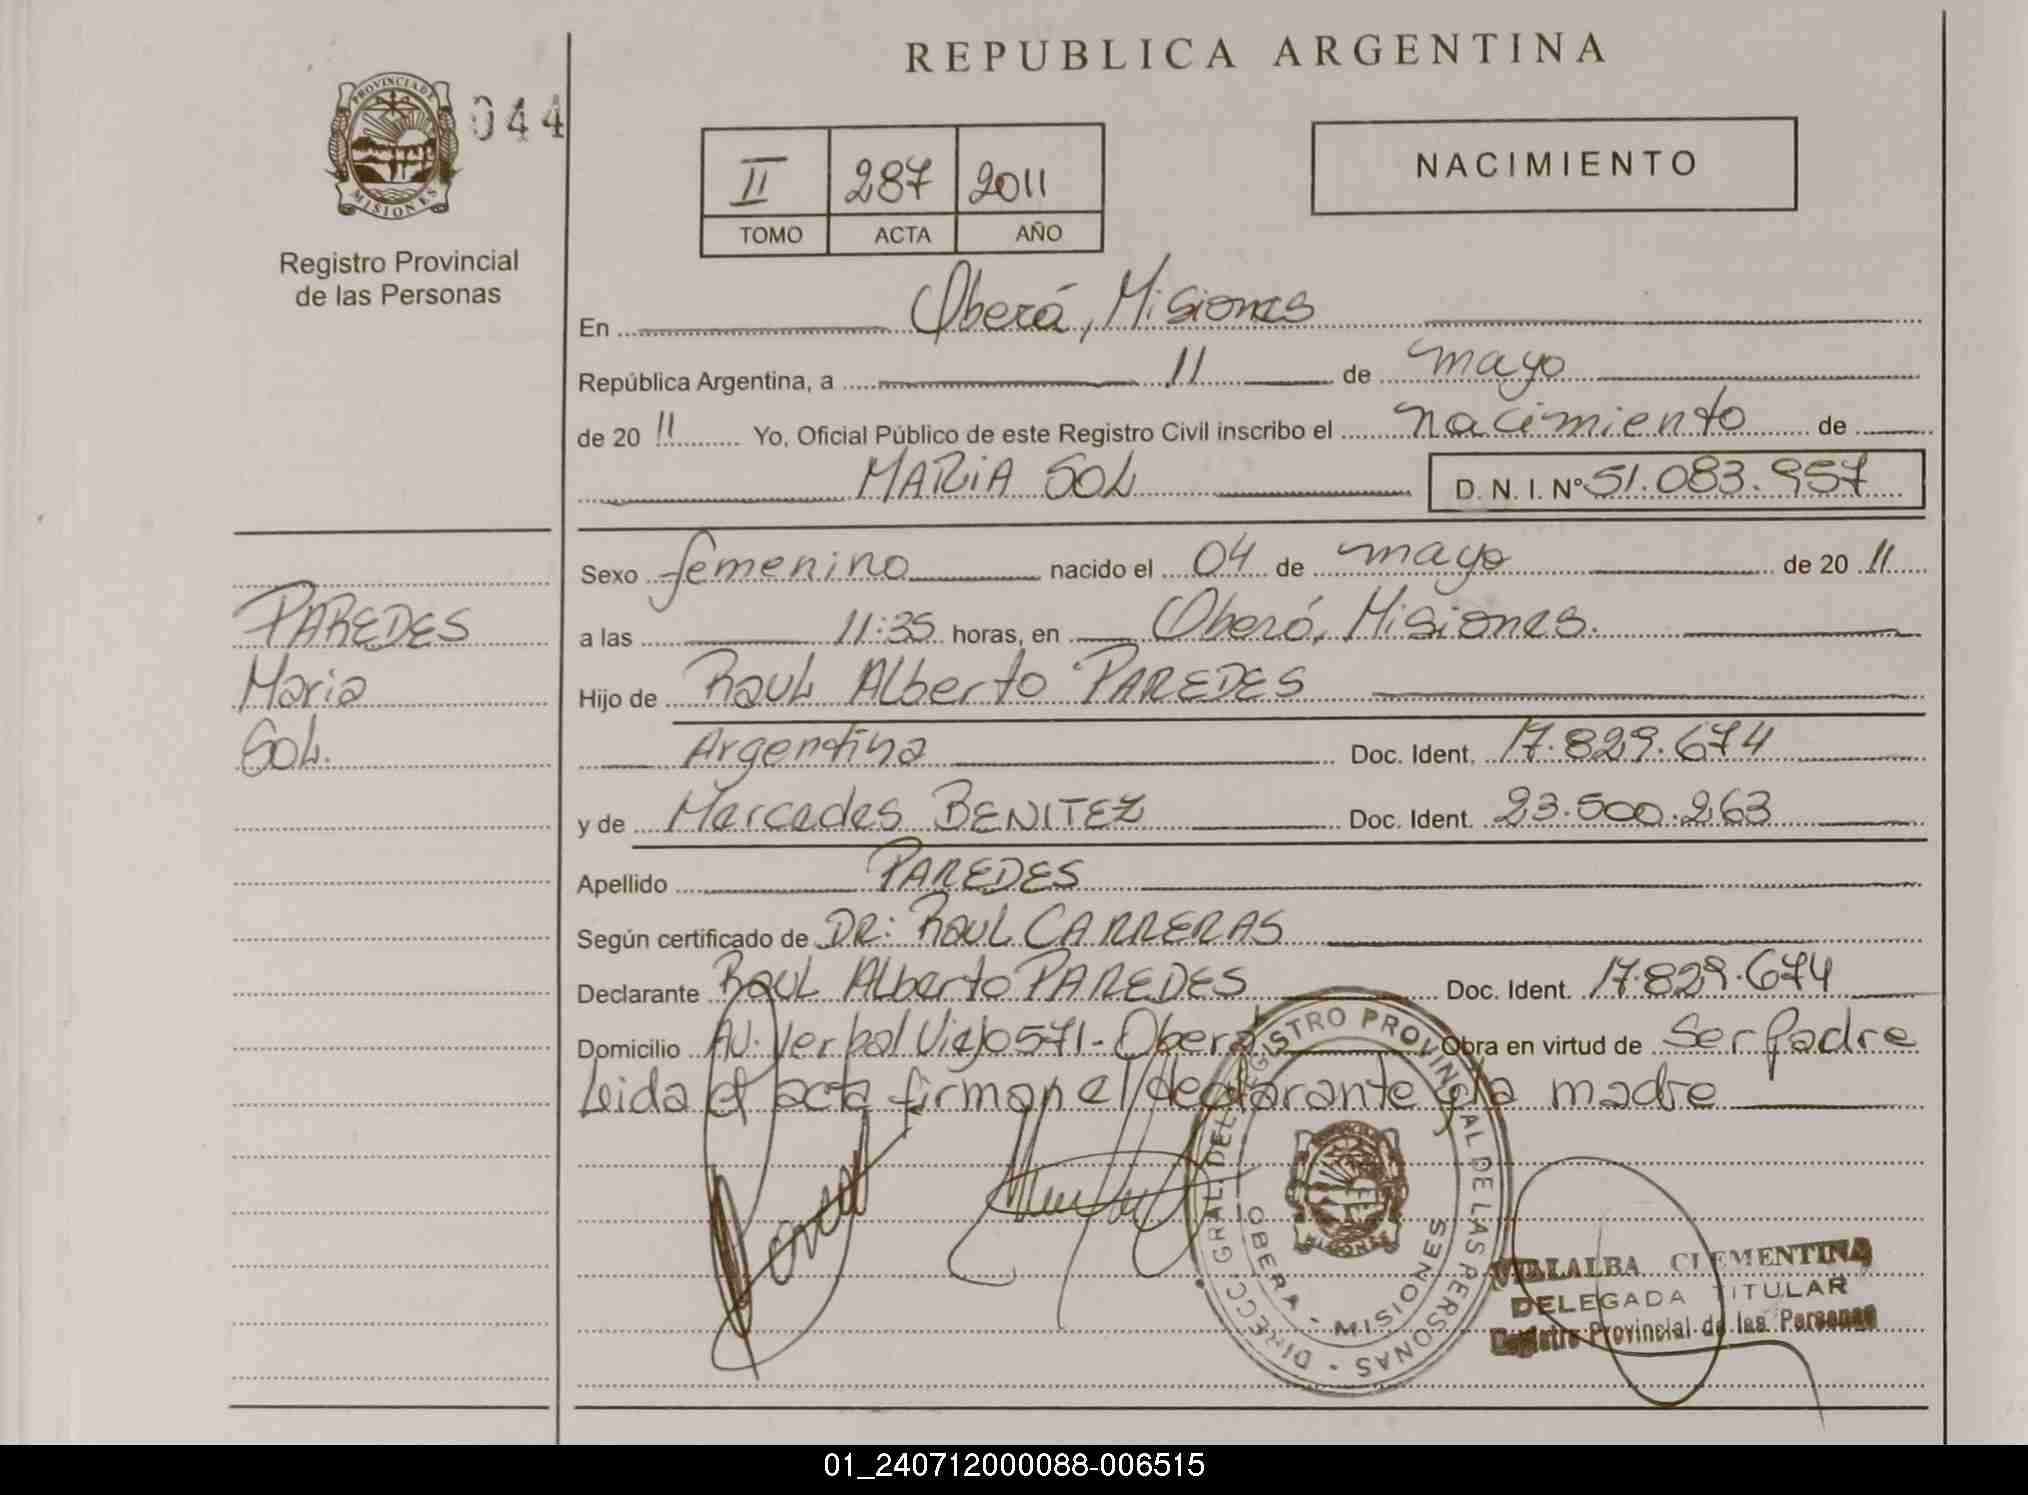 REPUBLICA ARGENTINA
PROVINCIA DE
MISIONES
044
Registro Provincial
de las Personas
II 287 2011
TOMO ACTA AÑO
NACIMIENTO
En Oberá, Misiones
República Argentina, a 11 de mayo
de 20 11 Yo, Oficial Público de este Registro Civil inscribo el nacimiento de
MARIA SOL D. N. I. Nº 51.083.957
PAREDES
Maria
SOL.
Sexo femenino nacido el 04 de mayo de 20 11
a las 11:35 horas, en Oberá, Misiones.
Hijo de Raul Alberto PAREDES
Argentina Doc. Ident. 17.829.674
y de Mercedes BENITEZ Doc. Ident. 23.500.263
Apellido PAREDES
Según certificado de DR: Raul CARRERAS
Declarante Raul Alberto PAREDES Doc. Ident. 17.829.674
Domicilio AV. Yerbal Viejo 571 - Oberá Obra en virtud de Ser Padre
Leida el acta firman el declarante y la madre
DIRECC. GRAL. DEL REGISTRO PROVINCIAL DE LAS PERSONAS
OBERA - MISIONES
MISIONES
VILLALBA CLEMENTINA
DELEGADA TITULAR
Registro Provincial de las Personas
01_240712000088-006515